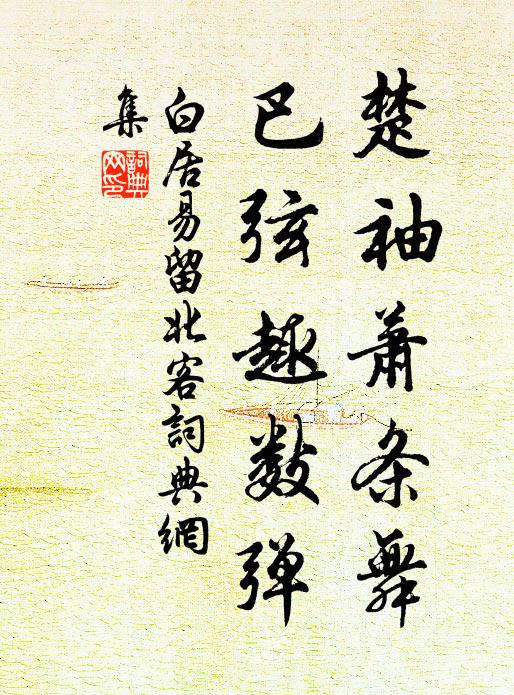 楚袖萧条舞
巴弦趣数弹
白居易留北客詞典網
集
詞典
网印